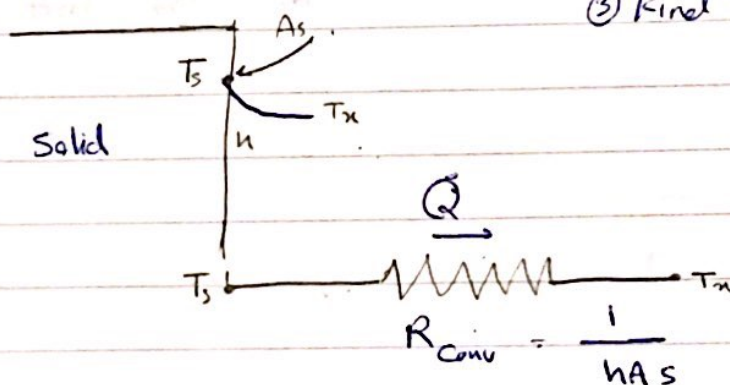 ③ Kind
As
Ts
Solid
h
Q
Ts
R Conv = 1 / hAs